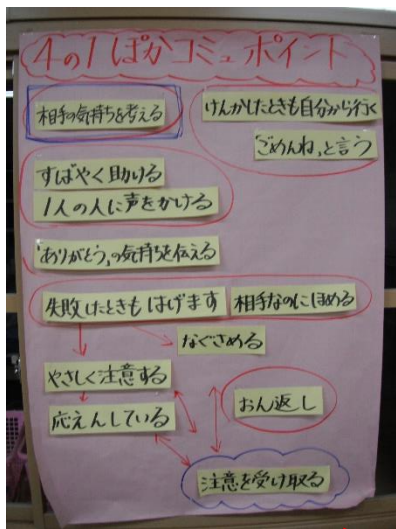 4の1ぽかコミュポイント
相手の気持ちを考える
けんかしたときも自分から行く
「ごめんね」と言う
すばやく助ける
1人の人に声をかける
「ありがとう」の気持ちを伝える
失敗したときもはげます
相手なのにほめる
なぐさめる
やさしく注意する
応えんしている
おん返し
注意を受け取る